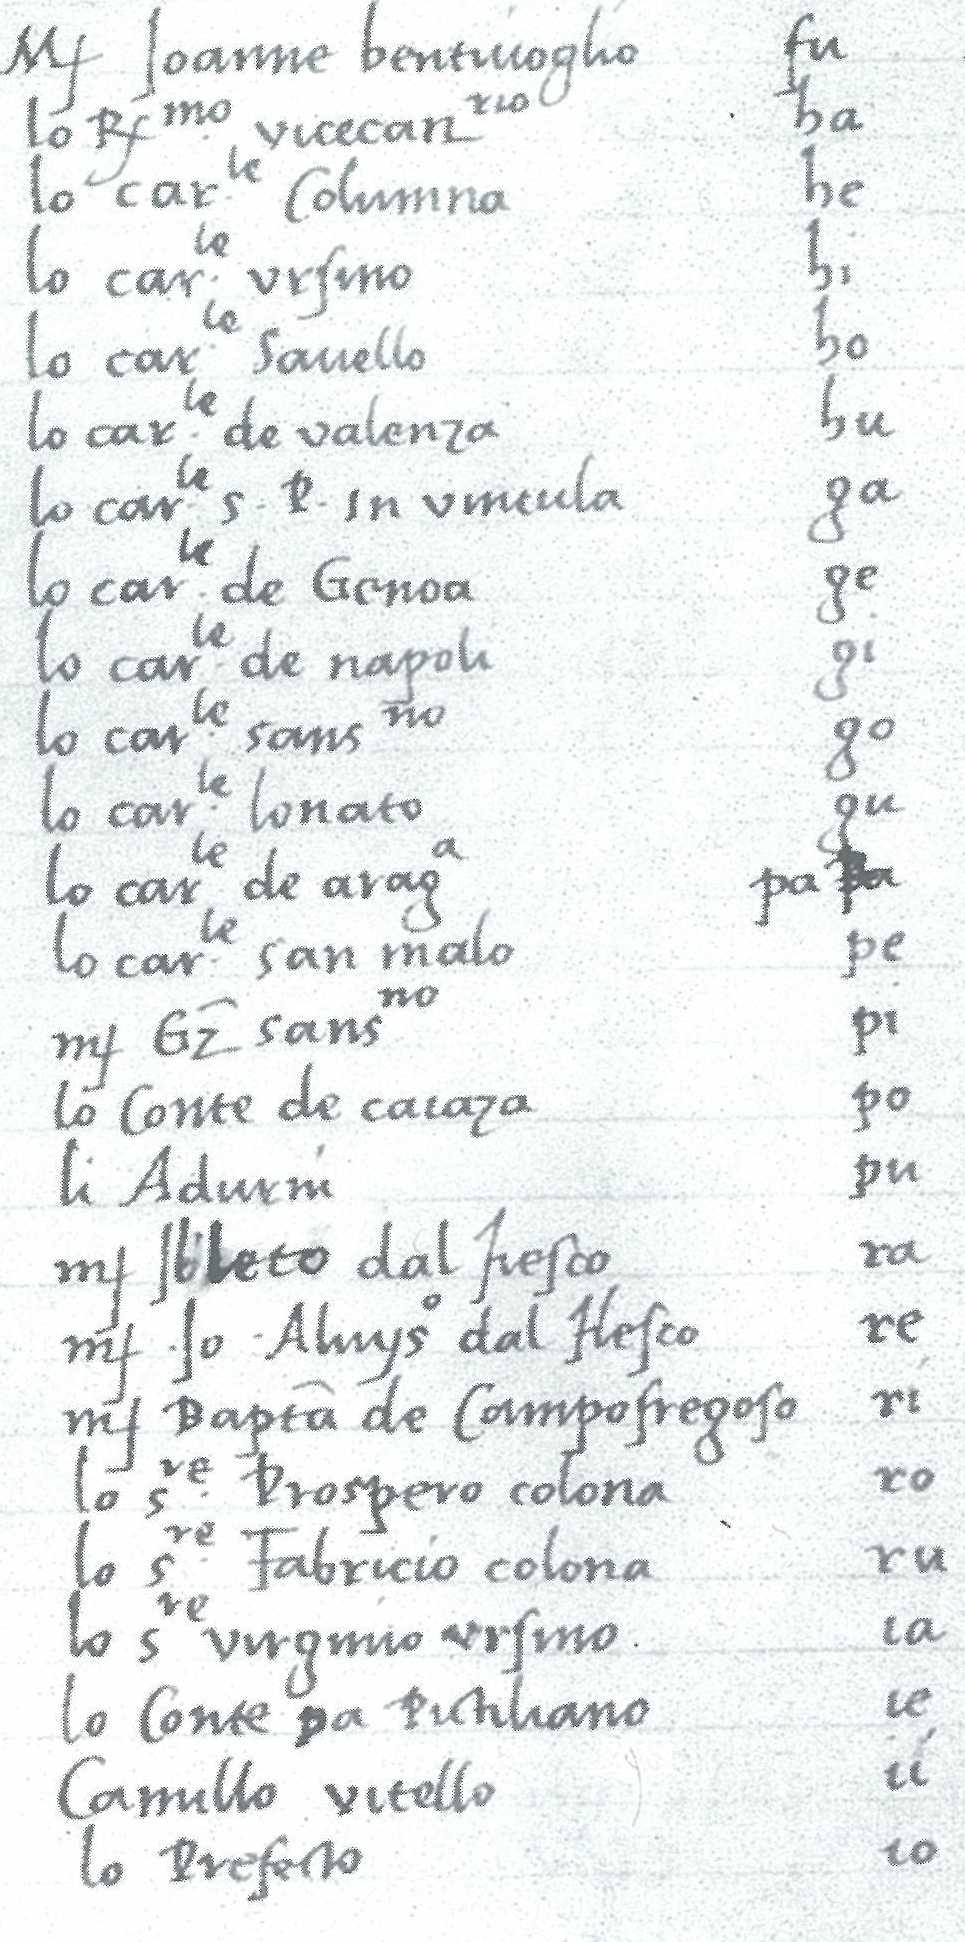 Mſ Ioanne bentiuoglio fu
lo Rſmo vicecanrio ha
lo car.le Columna he
lo car.le vrſino hi
lo car.le Sauello ho
lo car.le de valenza hu
lo car.le s. P. In vincula ga
lo car.le de Genoa ge
lo car.le de napoli gi
lo car.le sansno go
lo car.le lonato gu
lo car.le de araga pa pa
lo car.le san malo pe
mſ GZ̄ sansno pi
lo Conte de caiaza po
li Adurni pu
mſ dal fieſco ra
mſ .Io. Aluyso dal flieſco re
mſ Bapt̄a de Campofregoſo ri
lo s.re Prospero colona ro
lo s.re Fabricio colona ru
lo s.re virginio vrſino ia
lo Conte pa Pichliano ie
Camillo vitello ii
lo Prefecto io